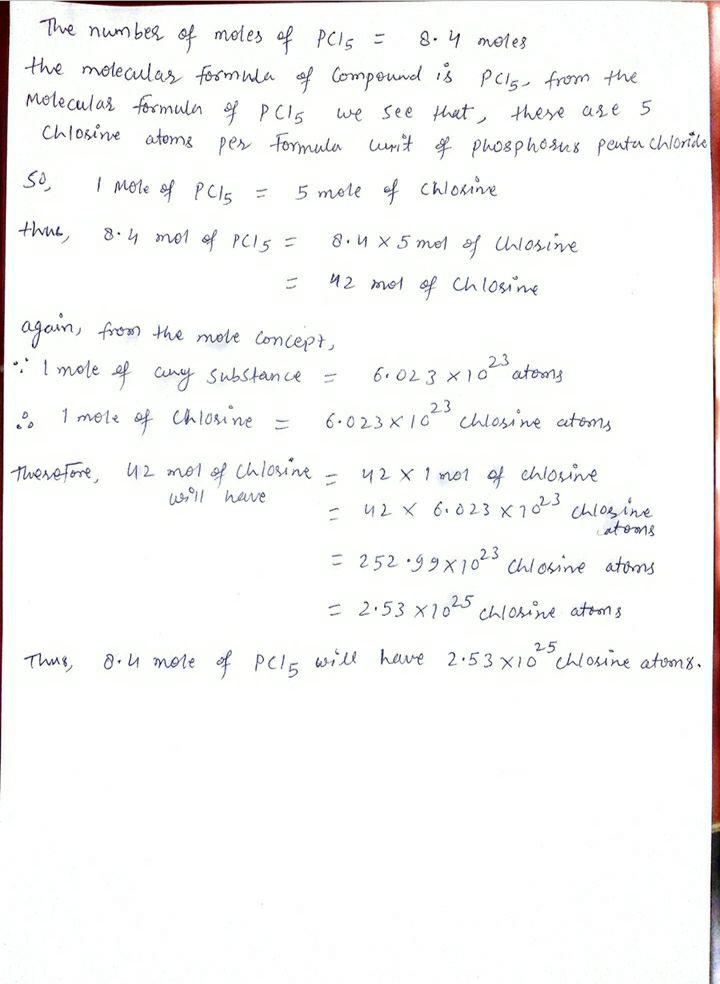 The number of moles of PCl5 = 8.4 moles
the molecular formula of Compound is PCl5, from the
Molecular formula of PCl5 we see that, there are 5
Chlorine atoms per formula unit of phosphorus penta chloride
So, 1 Mole of PCl5 = 5 mole of Chlorine
thus, 8.4 mol of PCl5 = 8.4 × 5 mol of Chlorine
= 42 mol of Chlorine
again, from the mole concept,
∵ 1 mole of any substance = 6.023 × 10^23 atoms
∴ 1 mole of Chlorine = 6.023 × 10^23 chlorine atoms
therefore, 42 mol of Chlorine will have = 42 × 1 mol of chlorine
= 42 × 6.023 × 10^23 chlorine atoms
= 252.99 × 10^23 Chlorine atoms
= 2.53 × 10^25 chlorine atoms
Thus, 8.4 mole of PCl5 will have 2.53 × 10^25 chlorine atoms.